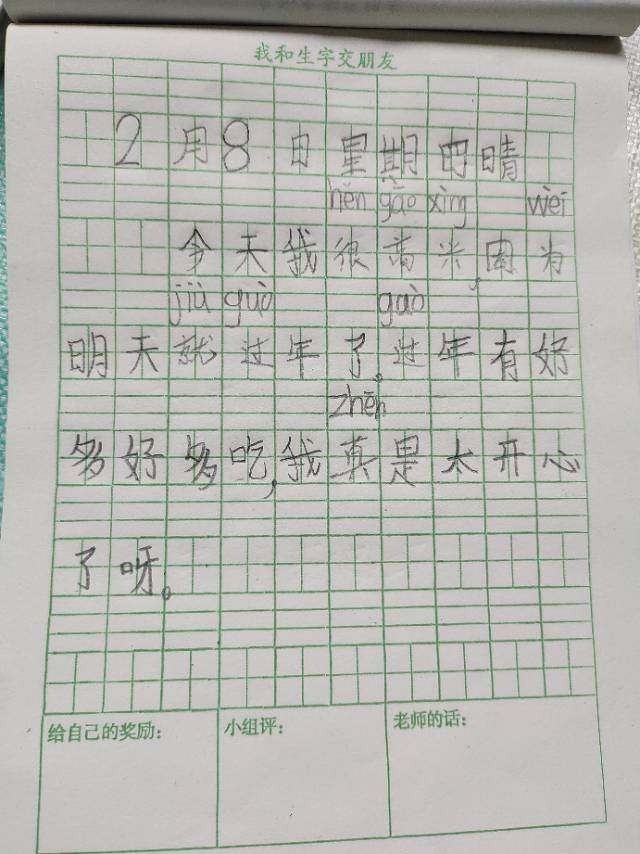 我和生字交朋友
2月8日星期四晴
hěn gāo xìng wèi
今天我很高米,因为
jiù guò guò
明天就过年了。过年有好
zhēn
多好多吃,我真是太开心
了呀。
给自己的奖励: 小组评: 老师的话: